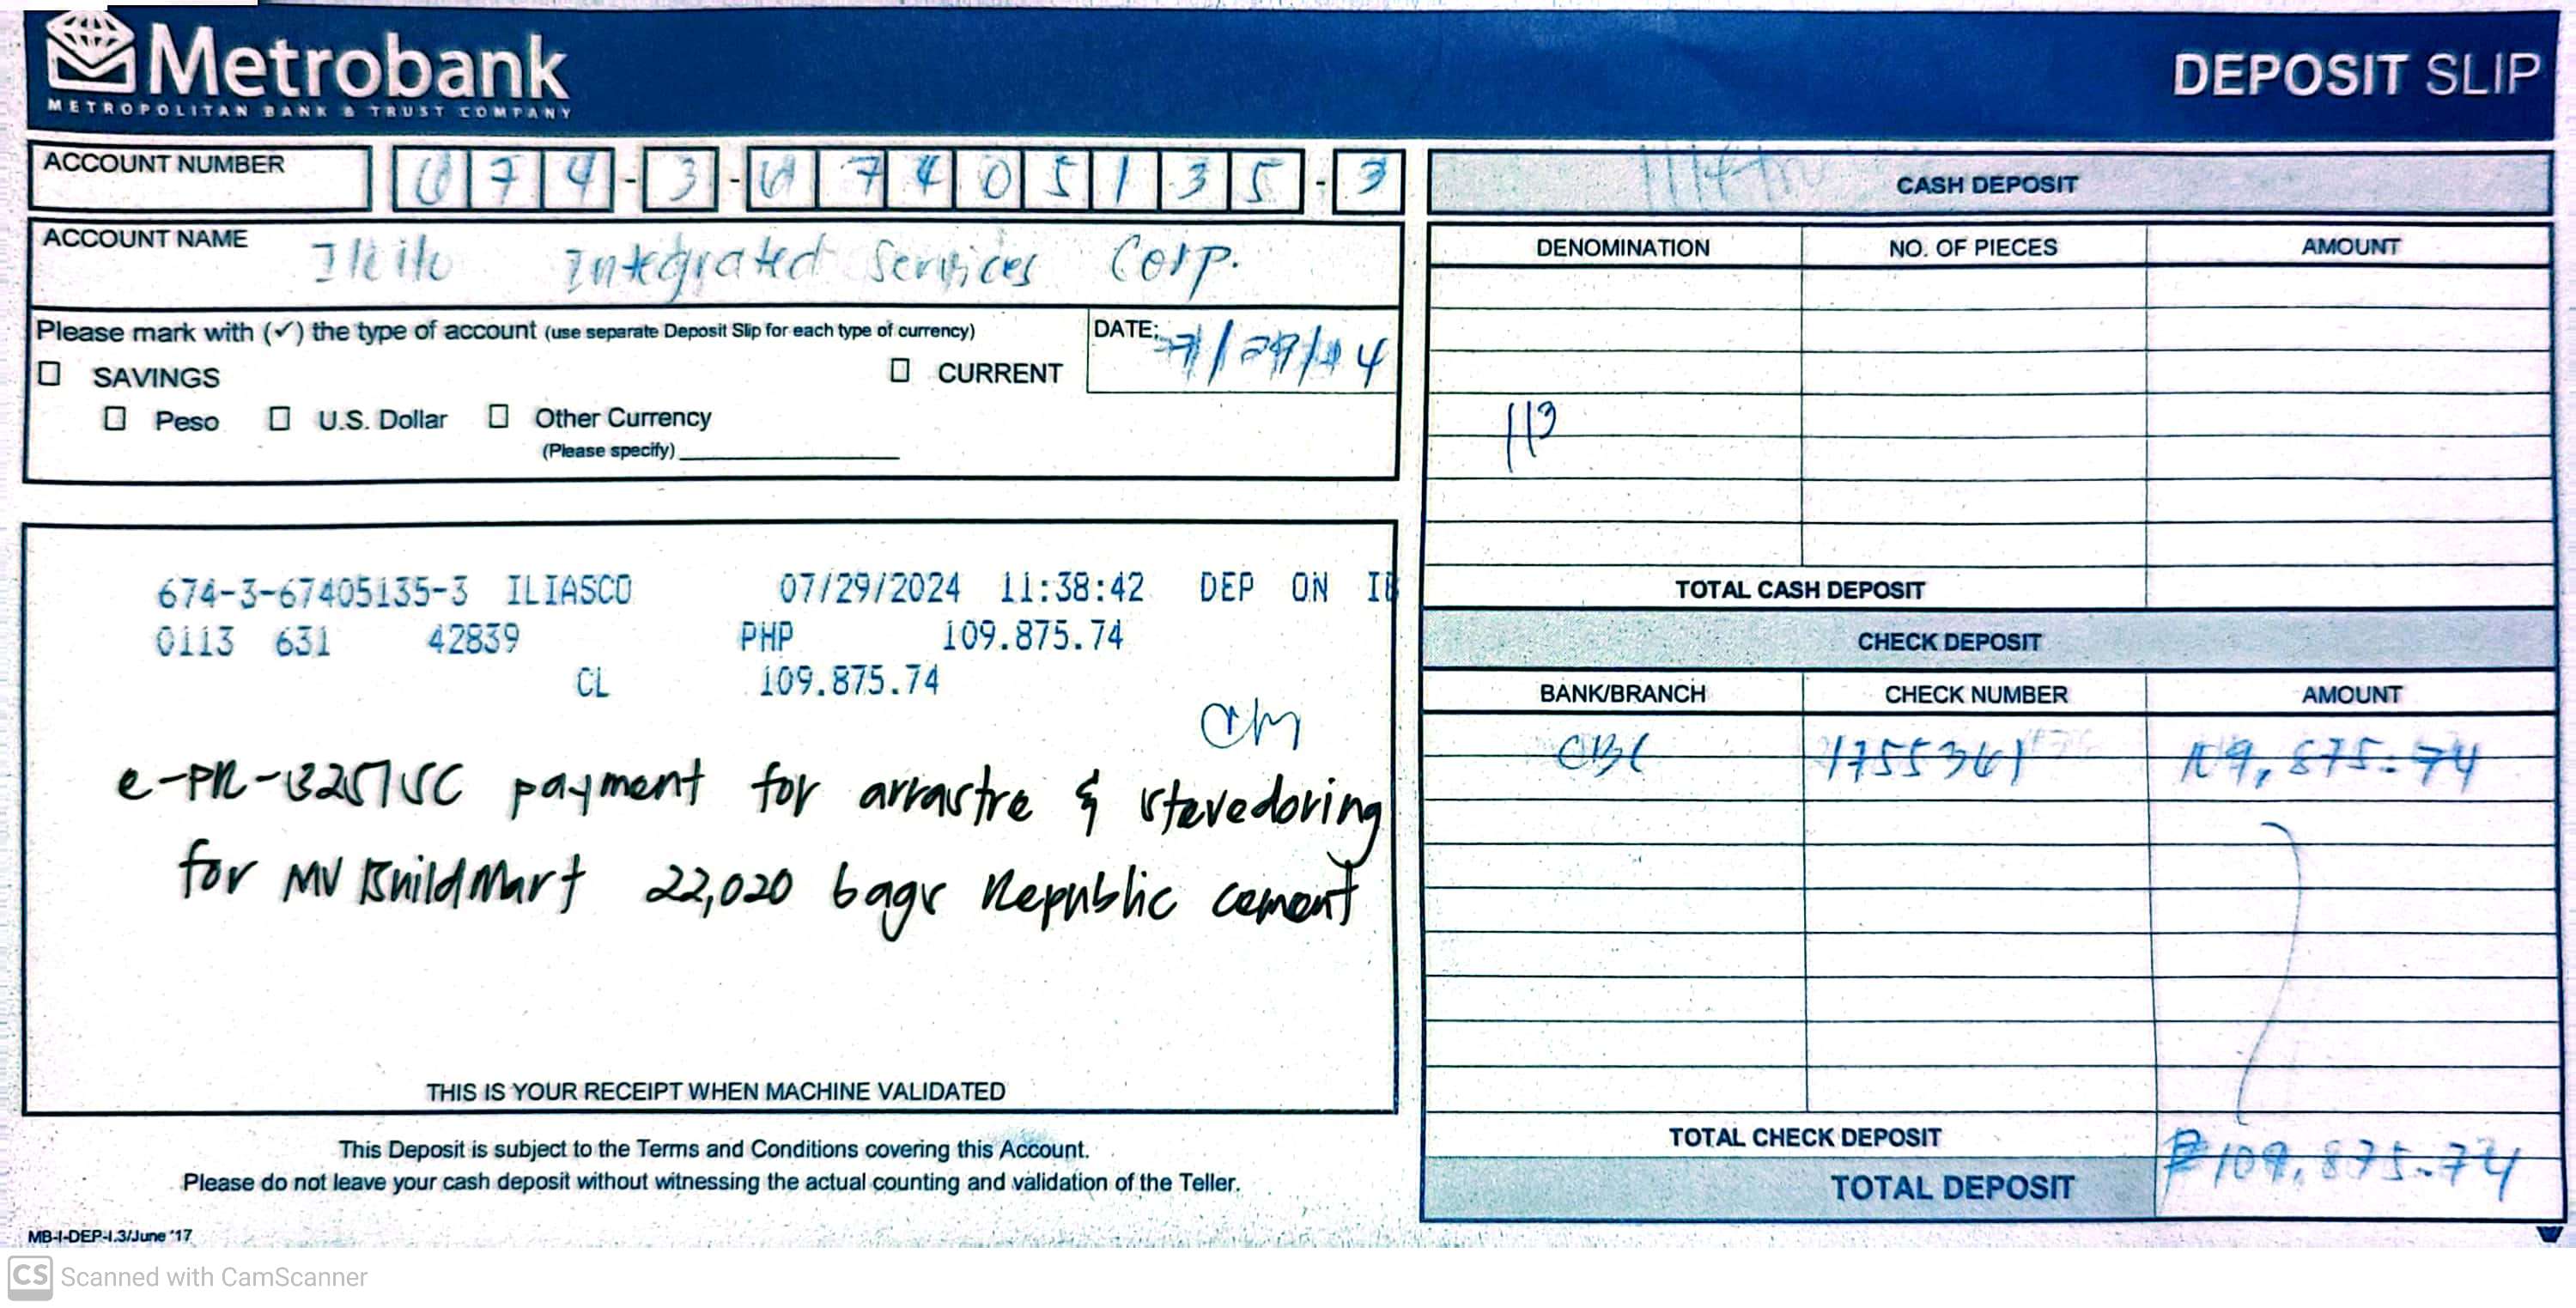 Metrobank
METROPOLITAN BANK & TRUST COMPANY
DEPOSIT SLIP
ACCOUNT NUMBER 674-3-67405135-3
ACCOUNT NAME Integrated Services Corp.
Please mark with (✓) the type of account (use separate Deposit Slip for each type of currency)
DATE: 7/29/24
SAVINGS
CURRENT
Peso U.S. Dollar Other Currency
(Please specify)
674-3-67405135-3 ILIASCO 07/29/2024 11:38:42 DEP ON
0113 631 42839 PHP 109.875.74
CL 109.875.74
payment for arrastre & stevedoring
for MV BuildMart 22,020 bags Republic cement
THIS IS YOUR RECEIPT WHEN MACHINE VALIDATED
This Deposit is subject to the Terms and Conditions covering this Account.
Please do not leave your cash deposit without witnessing the actual counting and validation of the Teller.
MB-I-DEP-I.3/June '17
CASH DEPOSIT
DENOMINATION NO. OF PIECES AMOUNT
113
TOTAL CASH DEPOSIT
CHECK DEPOSIT
BANK/BRANCH CHECK NUMBER AMOUNT
CBC 1755361 109,875.74
TOTAL CHECK DEPOSIT
TOTAL DEPOSIT ₱109,875.74
CS Scanned with CamScanner